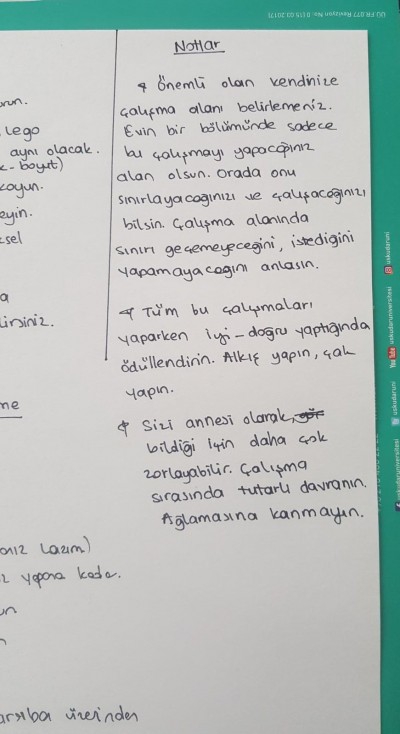 ÜÜ.FR.077 Revizyon No: 0 (15.03.2017)
Notlar
* Önemli olan kendinize
çalışma alanı belirlemeniz.
Evin bir bölümünde sadece
bu çalışmayı yapacağınız
alan olsun. Orada onu
sınırlayacağınızı ve çalışacağınızı
bilsin. Çalışma alanında
sınırı geçemeyeceğini, istediğini
yapamayacağını anlasın.
* Tüm bu çalışmaları
yaparken iyi-doğru yaptığında
ödüllendirin. Alkış yapın, çak
yapın.
* Sizi annesi olarak,
bildiği için daha çok
zorlayabilir. Çalışma
sırasında tutarlı davranın.
Ağlamasına kanmayın.
lego
aynı olacak.
boyut)
koyun.
eyin.
sel
a
me
lazım)
z yapana kadar.
un
üzerinden
uskudaruni
uskudaruniversitesi
You Tube
uskudaruni
uskudaruniversitesi